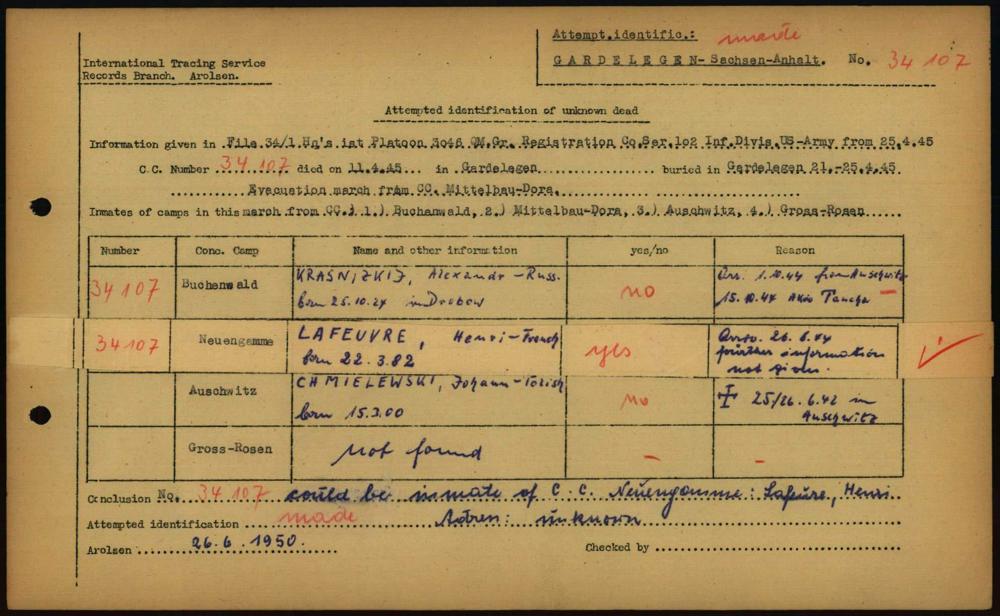 International Tracing Service
Records Branch. Arolsen.
Attempt.identific.: made
GARDELEGEN-Sachsen-Anhalt. No. 34 107
Attempted identification of unknown dead
Information given in File 34/1 Hq's 1st Platoon 3046 QM.Gr. Registration Co.Ser.102 Inf.Divis.US-Army from 25.4.45
C.C. Number 34 107 died on 11.4.45 in Gardelegen buried in Gardelegen 21.-25.4.45.
Evacuation march from CC. Mittelbau-Dora.
Inmates of camps in this march from CC.: 1.) Buchenwald, 2.) Mittelbau-Dora, 3.) Auschwitz, 4.) Gross-Rosen
Number Conc. Camp Name and other information yes/no Reason
34107 Buchenwald KRASNIZKIJ, Alexandr - Russ. no Arr. 1.10.44 from Auschwitz
born 25.10.24 in Drobow 15.10.44 Aklo Taucha -
34107 Neuengamme LAFEUVRE, Henri - French yes Arrv. 26.6.44
born 22.3.82 further information
not given.
Auschwitz CHMIELEWSKI, Johann - no † 25/26.6.42 in
born 15.3.00 Auschwitz
Gross-Rosen not found - -
Conclusion No. 34 107 could be inmate of C.C. Neuengamme: Lafeuvre, Henri
Attempted identification made Adren: unknown
Arolsen 26.6.1950. Checked by